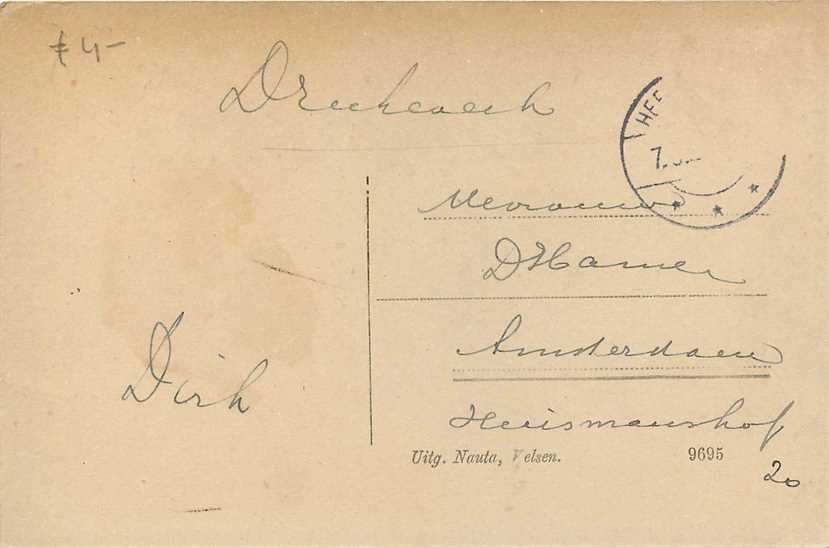 € 4-
Drukwerk
HEE
7.
Mevrouw
D Hamer
Amsterdam
Huismanshof
Dirk
Uitg. Nauta, Velsen.
9695
20